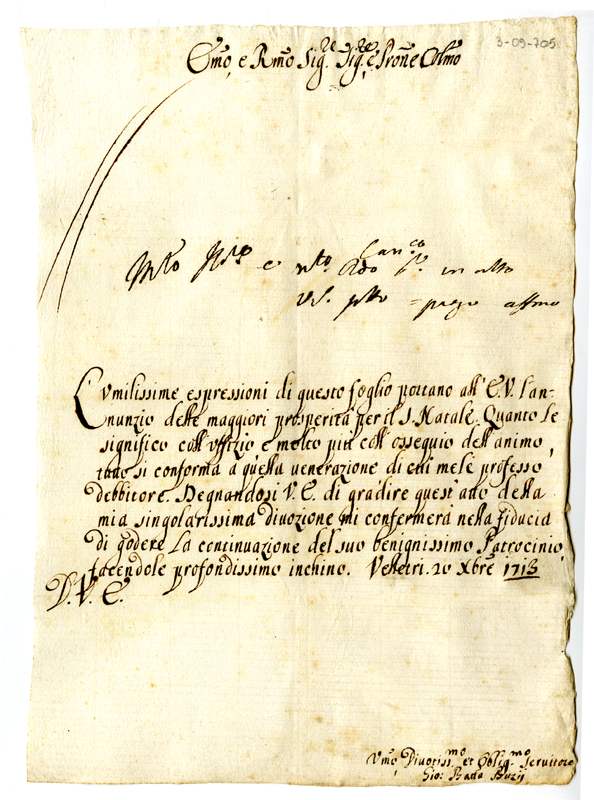 3-09-705
Emo, e Rmo Sig.re Sig.re e Prone Colmo
e in alto
prego
L'vmilissime espressioni di questo foglio portano all'E.V. l'an-
nunzio delle maggiori prosperità per il S. Natale. Quanto le
significo coll'vffizio e molto più coll'ossequio dell'animo,
tutto si conforma a quella uenerazione di cui mele professo
debbitore. Degnandosi V.E. di gradire quest'atto della
mia singolarissima diuozione mi confermerà nella fiducia
di godere la continuazione del suo benignissimo Patrocinio,
facendole profondissimo inchino. Velletri. 20 Xbre 1713
D. V. E.
Vmo, Diuotiss.mo et Oblig.mo seruitore
Gio: Batta